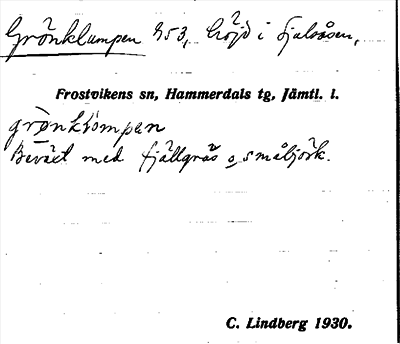 Grönklumpen 953, höjd i Fjalvåsen,
Frostvikens sn, Hammerdals tg, Jämtl. l.
grö̀nkḷompen
Beväxt med fjällgräs o småbjörk.
C. Lindberg 1930.